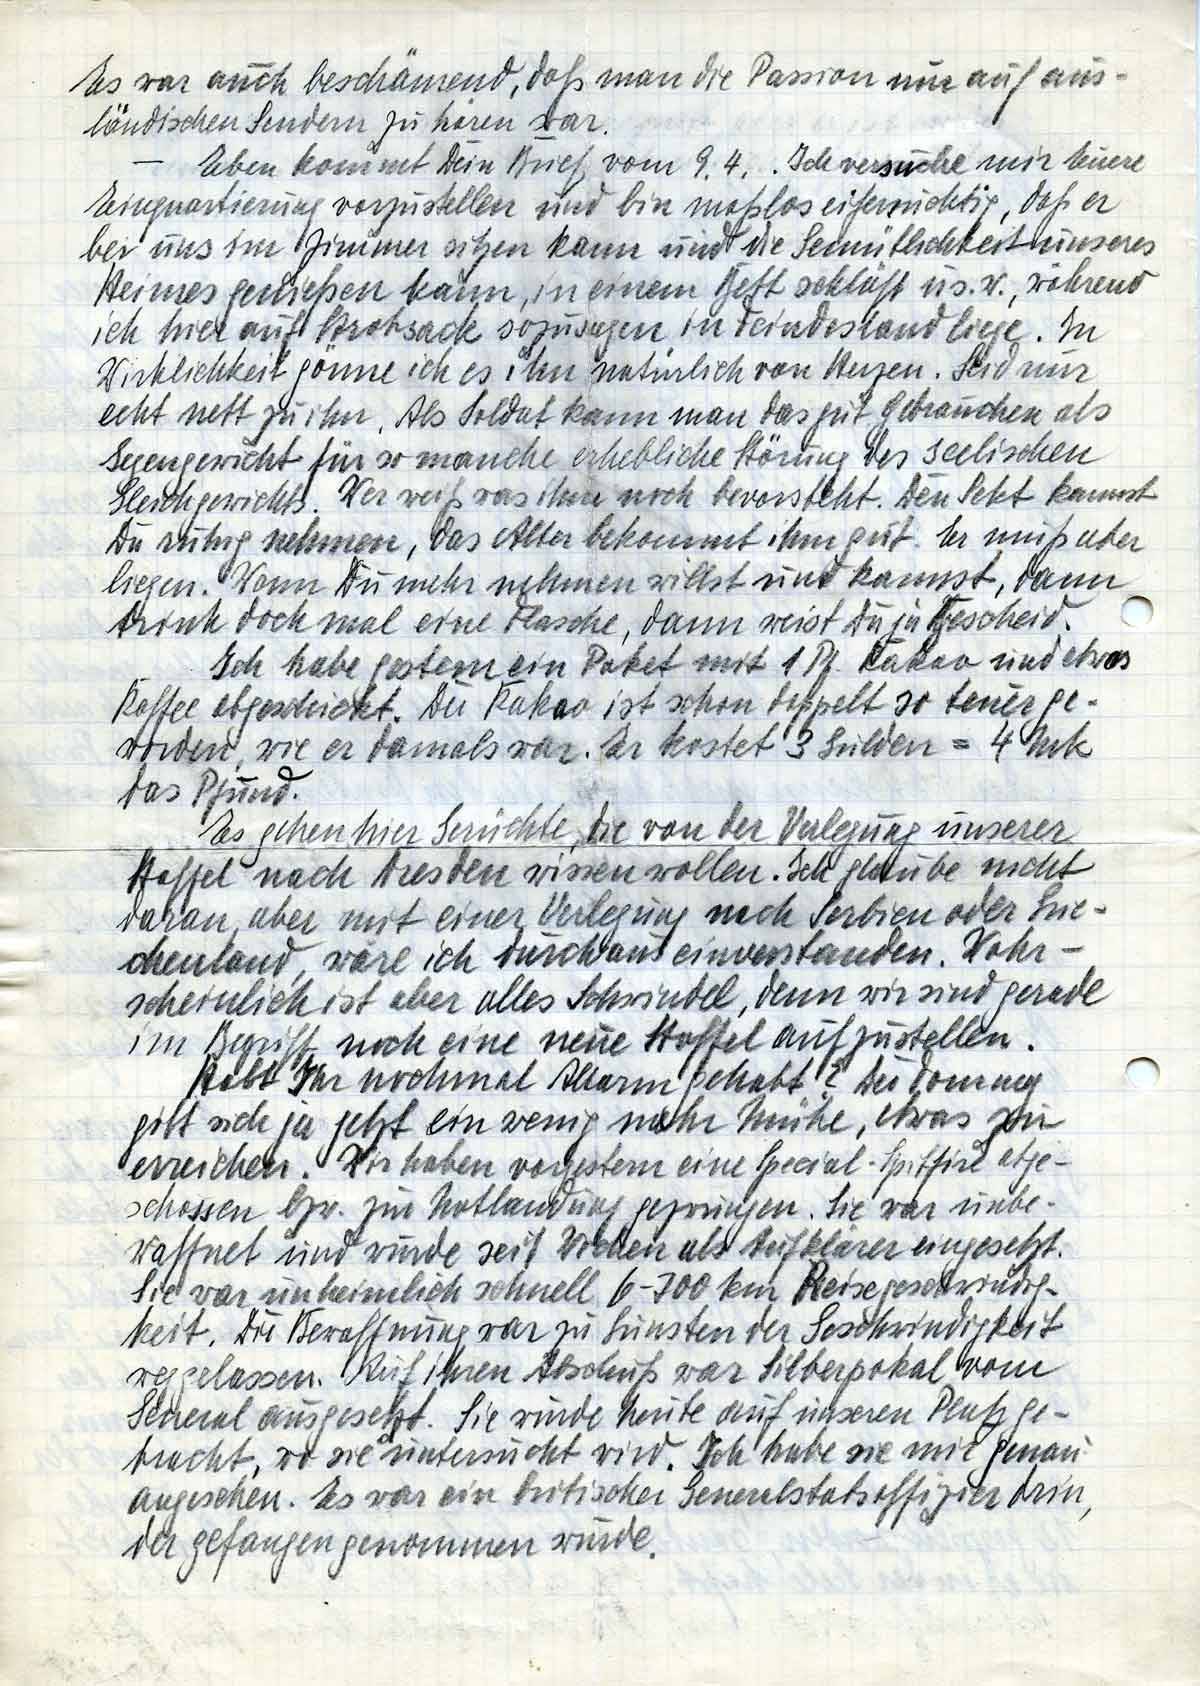 Es war auch beschämend, daß man die Passion nur auf aus-
ländischen Sendern zu hören war.
— Eben kommt Dein Brief vom 9.4. . Ich versuche mir Euere
Einquartierung vorzustellen und bin maßlos eifersüchtig, daß er
bei uns im Zimmer sitzen kann und die Gemütlichkeit unseres
Heimes genießen kann, in einem Bett schläft u.s.w., während
ich hier auf Strohsack sozusagen in Feindesland liege. In
Wirklichkeit gönne ich es ihm natürlich von Herzen. Seid nur
echt nett zu ihm. Als Soldat kann man das gut gebrauchen als
Gegengewicht für so manche erhebliche Störung des seelischen
Gleichgewichts. Wer weiß was ihm noch bevorsteht. Den Sekt kannst
Du ruhig nehmen, das Alter bekommt ihm gut. Er muß aber
liegen. Wenn Du mehr nehmen willst und kannst, dann
trink doch mal eine Flasche, dann weist Du ja Bescheid.
Ich habe gestern ein Paket mit 1 Pf. Kakao und etwas
Kaffee abgeschickt. Der Kakao ist schon doppelt so teuer ge-
worden, wie er damals war. Er kostet 3 Gulden = 4 Mk
das Pfund.
Es gehen hier Gerüchte, die von der Verlegung unserer
Staffel nach Dresden wissen wollen. Ich glaube nicht
daran, aber mit einer Verlegung nach Serbien oder Grie-
chenland, wäre ich durchaus einverstanden. Wahr-
scheinlich ist aber alles Schwindel, denn wir sind gerade
im Begriff, noch eine neue Staffel aufzustellen.
Habt Ihr nochmal Alarm gehabt? Der Tommy
gibt sich ja jetzt ein wenig mehr Mühe, etwas zu
erreichen. Wir haben vorgestern eine Special-Spitfire abge-
schossen bzw. zur Notlandung gezwungen. Sie war unbe-
waffnet und wurde seit Wochen als Aufklärer eingesetzt.
Sie war unheimlich schnell 6-700 km Reisegeschwindig-
keit. Die Bewaffnung war zu Gunsten der Geschwindigkeit
weggelassen. Auf ihren Abschuß war Silberpokal vom
General ausgesetzt. Sie wurde heute auf unseren Platz ge-
bracht, wo sie untersucht wird. Ich habe sie mir genau
angesehen. Es war ein britischer Generalstabsoffizier drin,
der gefangengenommen wurde.